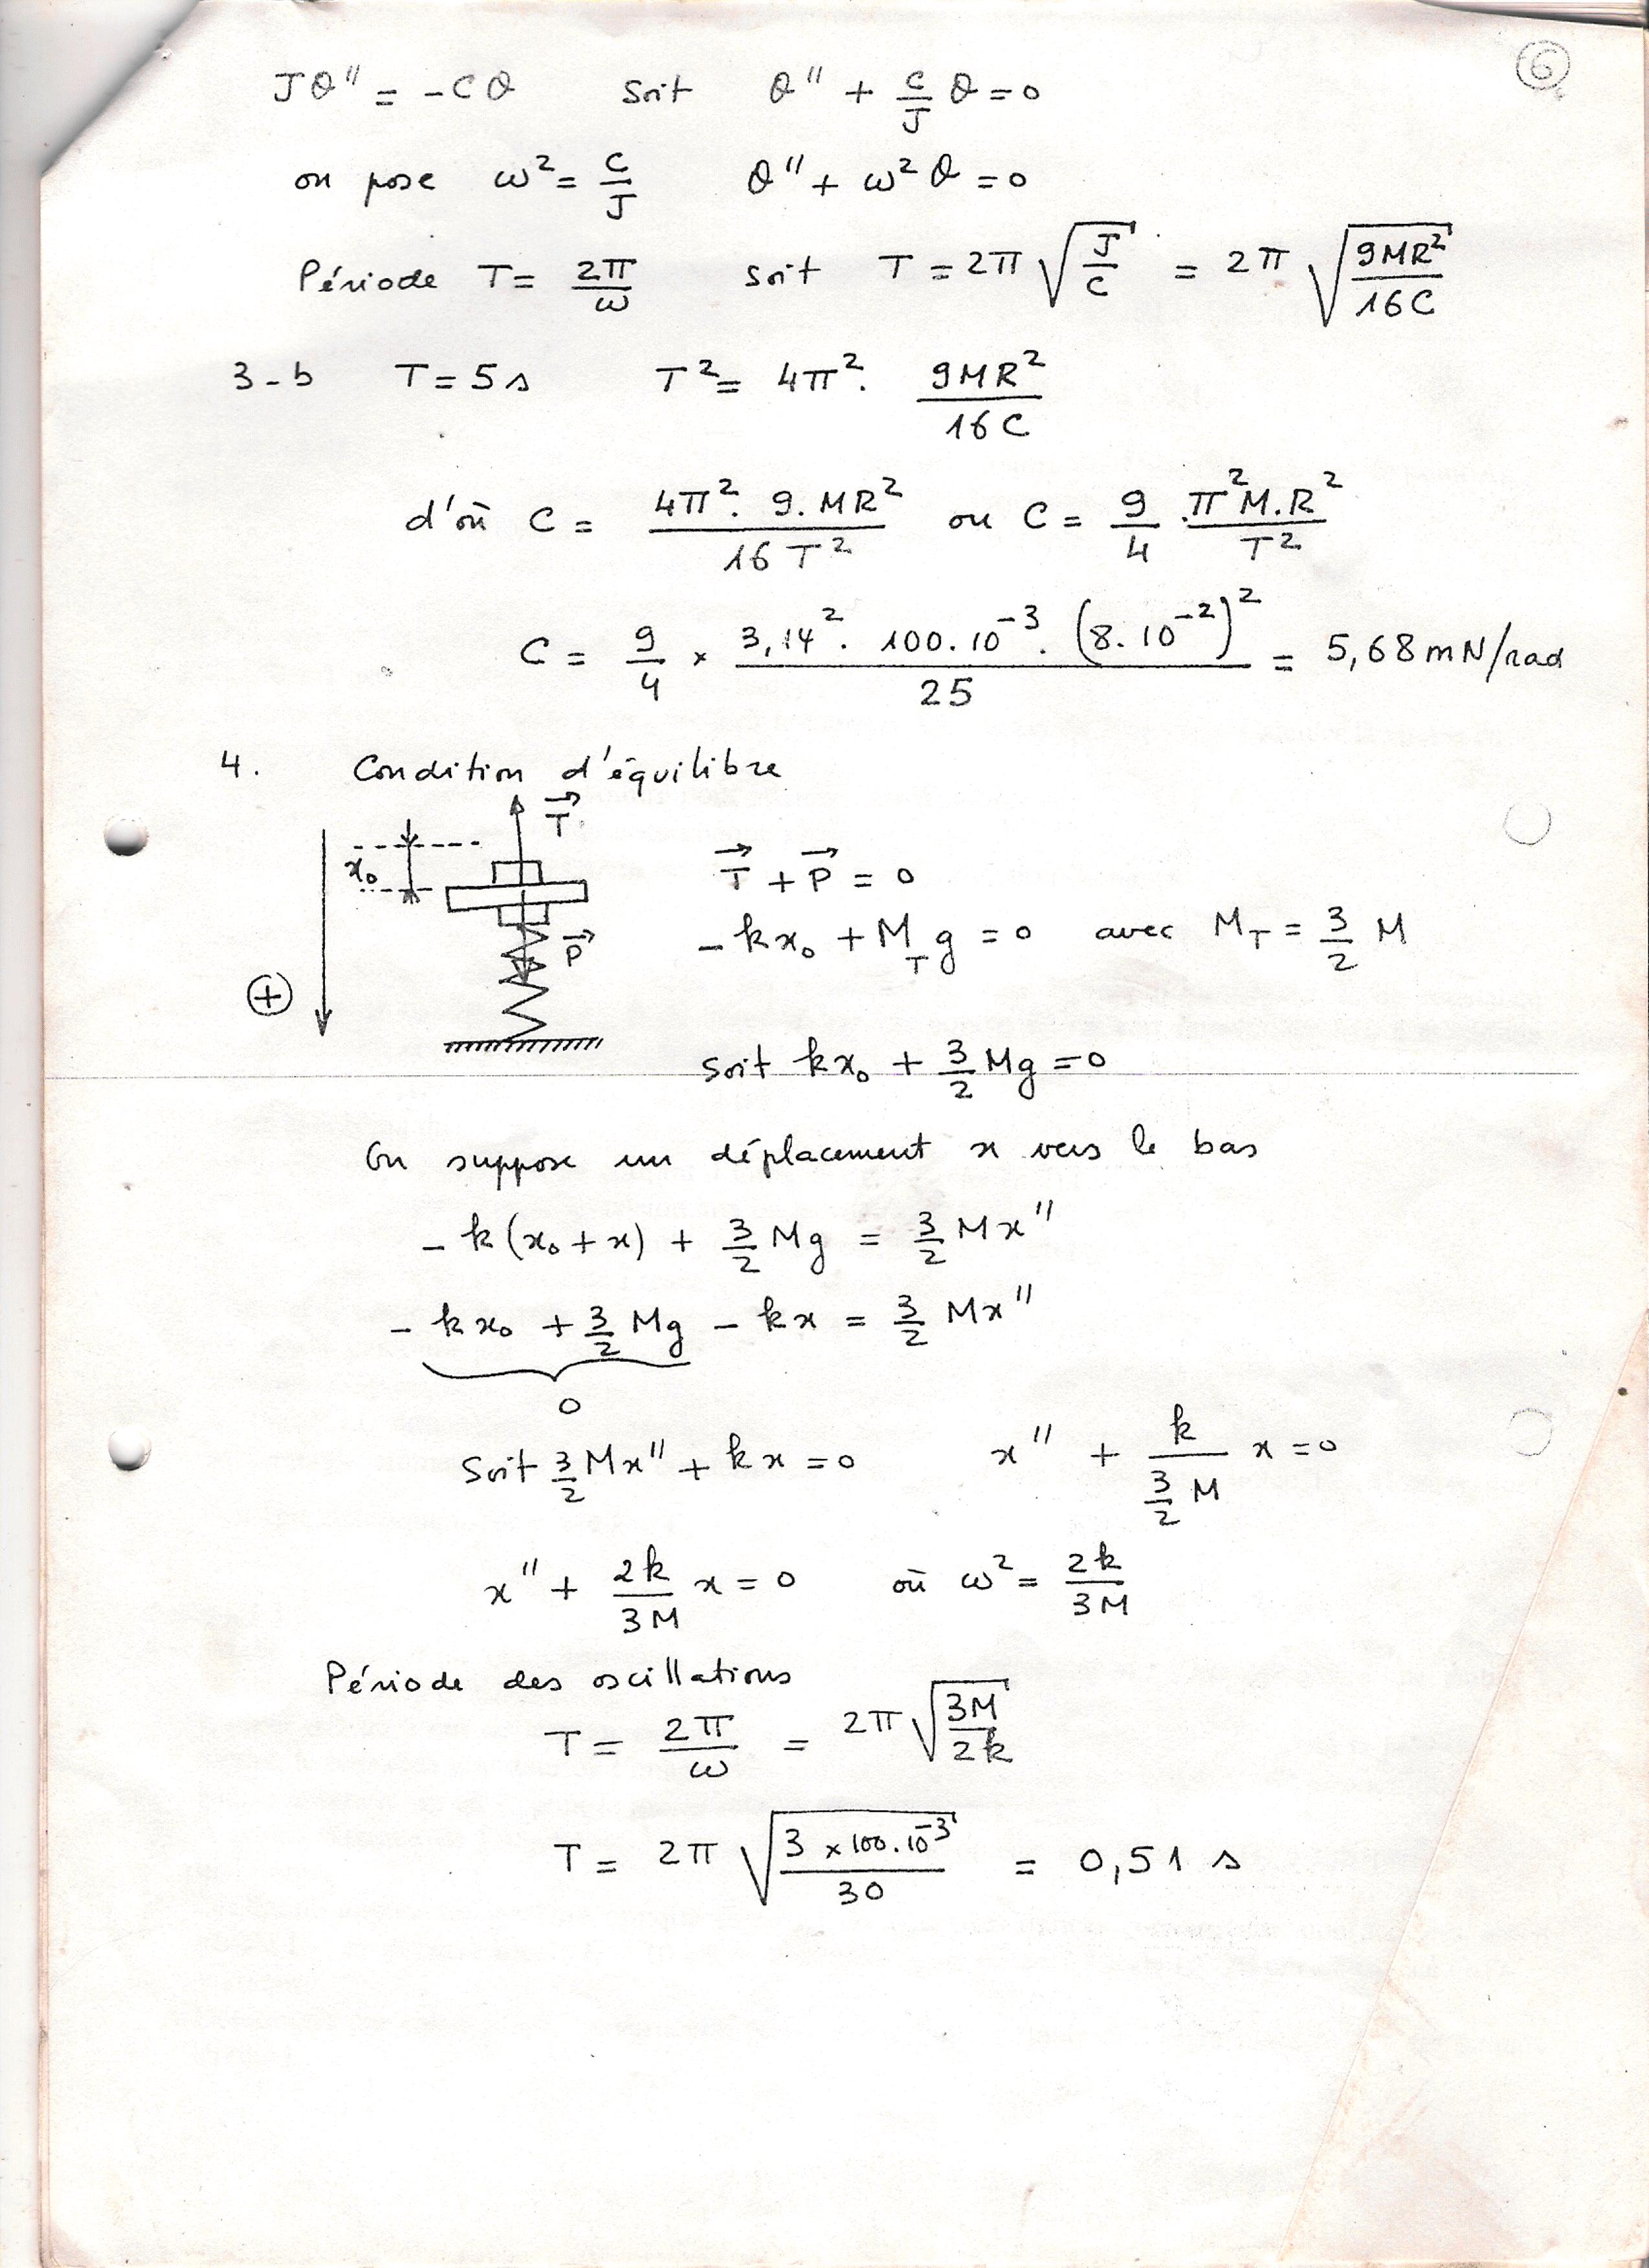 6
Jθ'' = -Cθ soit θ'' + C/J θ = 0
on pose ω² = C/J θ'' + ω²θ = 0
Période T = 2π/ω soit T = 2π √(J/C) = 2π √(9MR²/16C)
3-b T = 5s T² = 4π². 9MR²/16C
d'où C = 4π². 9.MR²/16T² ou C = 9/4 . π²M.R²/T²
C = 9/4 × 3,14². 100.10⁻³. (8.10⁻²)²/25 = 5,68 mN/rad
4. Condition d'équilibre
T
x₀
T + P = 0
P
-kx₀ + M_T g = 0 avec M_T = 3/2 M
+
soit kx₀ + 3/2 Mg = 0
On suppose un déplacement x vers le bas
-k(x₀ + x) + 3/2 Mg = 3/2 Mx''
-kx₀ + 3/2 Mg - kx = 3/2 Mx''
0
Soit 3/2 Mx'' + kx = 0 x'' + k/(3/2 M) x = 0
x'' + 2k/3M x = 0 où ω² = 2k/3M
Période des oscillations
T = 2π/ω = 2π √(3M/2k)
T = 2π √(3 × 100.10⁻³/30) = 0,51 s